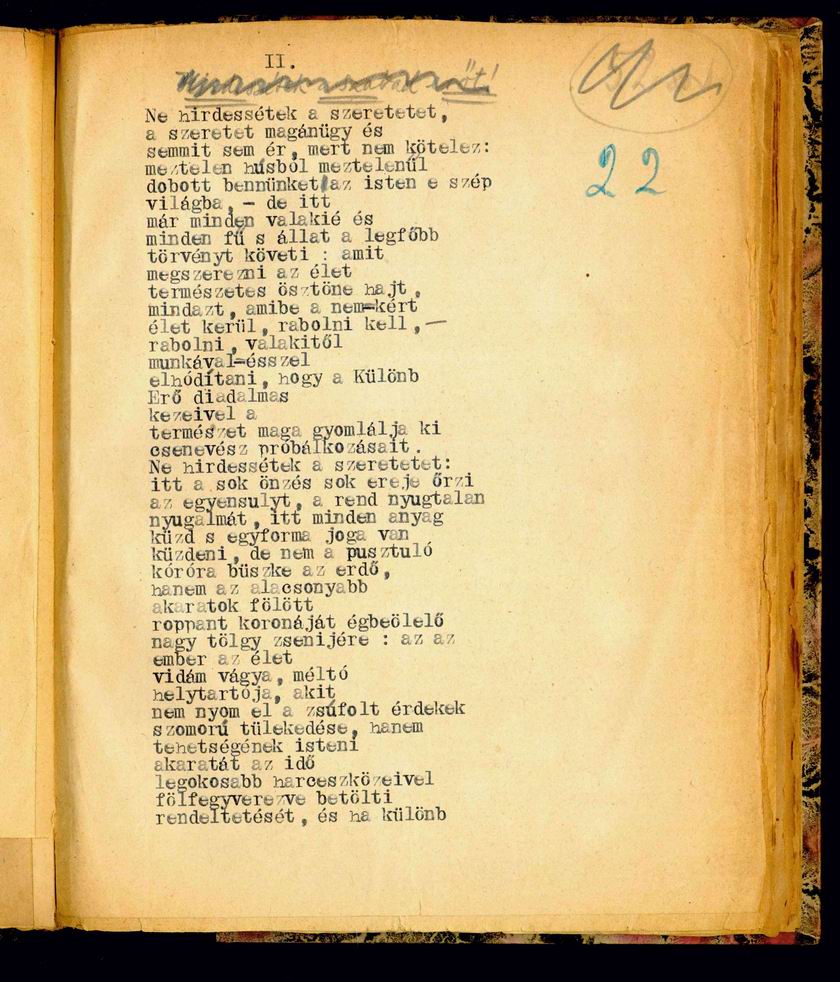 II.
22
Ne hirdessétek a szeretetet,
a szeretet magánügy és
semmit sem ér, mert nem kötelez:
meztelen húsból meztelenül
dobott bennünket az isten e szép
világba, – de itt
már minden valakié és
minden fű s állat a legfőbb
törvényt követi : amit
megszerezni az élet
természetes ösztöne hajt,
mindazt, amibe a nem-kért
élet kerül, rabolni kell,—
rabolni, valakitől
munkával-ésszel
elhódítani, hogy a Különb
Erő diadalmas
kezeivel a
természet maga gyomlálja ki
csenevész próbálkozásait.
Ne hirdessétek a szeretetet:
itt a sok önzés sok ereje őrzi
az egyensulyt, a rend nyugtalan
nyugalmát, itt minden anyag
küzd s egyforma joga van
küzdeni, de nem a pusztuló
kóróra büszke az erdő,
hanem az alacsonyabb
akaratok fölött
roppant koronáját égbeölelő
nagy tölgy zsenijére : az az
ember az élet
vidám vágya, méltó
helytartója, akit
nem nyom el a zsúfolt érdekek
szomorú tülekedése, hanem
tehetségének isteni
akaratát az idő
legokosabb harceszközeivel
fölfegyverezve betölti
rendeltetését, és ha különb